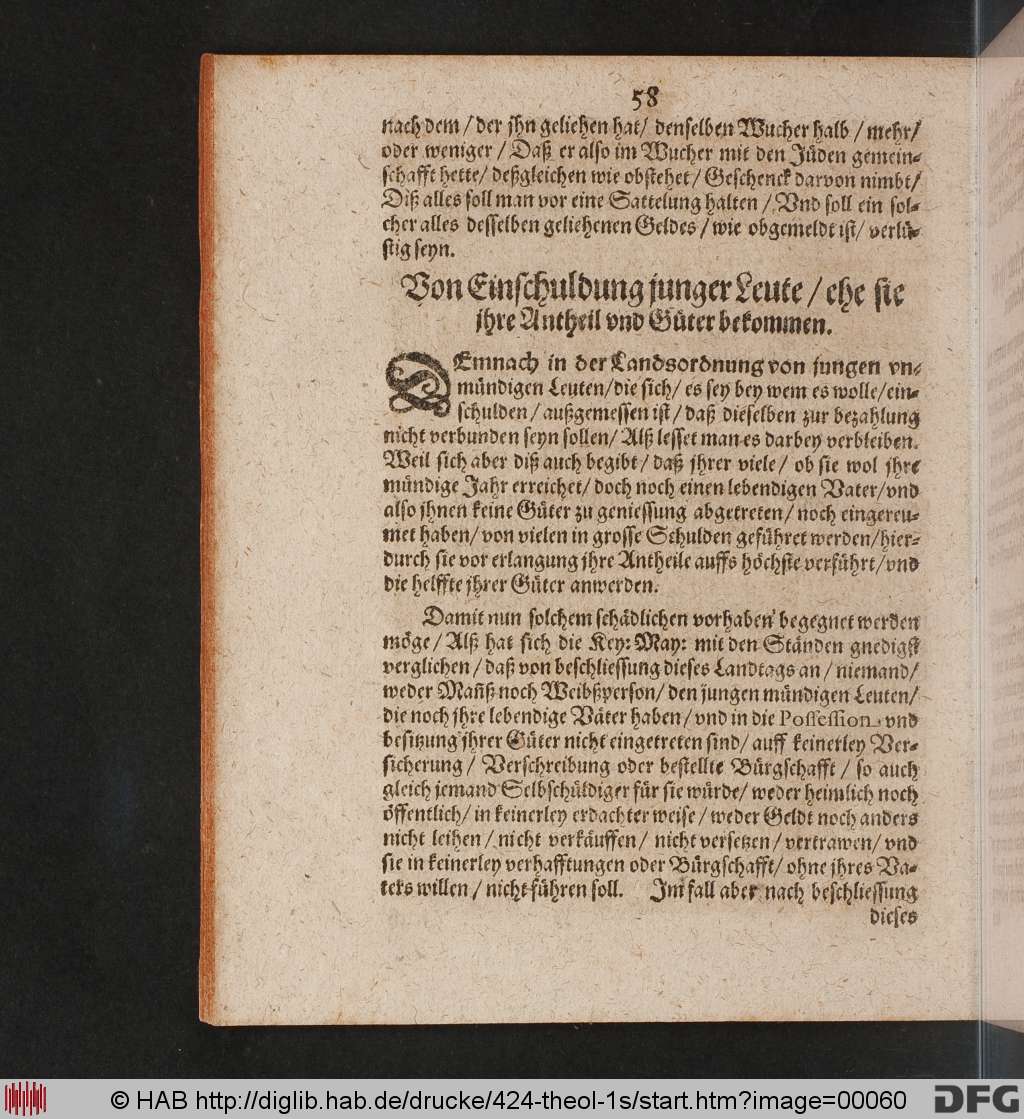 58
nach dem / der jhn geliehen hat / denselben Wucher halb / mehr /
oder weniger / Daß er also im Wucher mit den Jüden gemein⸗
schafft hette / deßgleichen wie obstehet / Geschenck darvon nimbt /
Diß alles soll man vor eine Sattelung halten / Vnd soll ein sol⸗
cher alles desselben geliehenen Geldes / wie obgemeldt ist / verlü⸗
stig seyn.
Von Einschuldung junger Leute / ehe sie
jhre Antheil vnd Güter bekommen.
DEmnach in der Landsordnung von jungen vn⸗
mündigen Leuten / die sich / es sey bey wem es wolle / ein⸗
schulden / außgemessen ist / daß dieselben zur bezahlung
nicht verbunden seyn sollen / Alß lesset man es darbey verbleiben.
Weil sich aber diß auch begibt / daß jhrer viele / ob sie wol jhre
mündige Jahr erreichet / doch noch einen lebendigen Vater / vnd
also jhnen keine Güter zu geniessung abgetreten / noch eingereu⸗
met haben / von vielen in grosse Schulden geführet werden / hier⸗
durch sie vor erlangung jhre Antheile auffs höchste verführt / vnd
die helffte jhrer Güter anwerden.
Damit nun solchem schädlichen vorhaben begegnet werden
möge / Alß hat sich die Key: May: mit den Ständen gnedigst
verglichen / daß von beschliessung dieses Landtags an / niemand /
weder Mañß noch Weibßperson / den jungen mündigen Leuten /
die noch jhre lebendige Väter haben / vnd in die Possession vnd
besitzung jhrer Güter nicht eingetreten sind / auff keinerley Ver⸗
sicherung / Verschreibung oder bestellte Bürgschafft / so auch
gleich jemand Selbschüldiger für sie würde / weder heimlich noch
öffentlich / in keinerley erdachter weise / weder Geldt noch anders
nicht leihen / nicht verkäuffen / nicht versetzen / vertrawen / vnd
sie in keinerley verhafftungen oder Bürgschafft / ohne jhres Va⸗
ters willen / nicht führen soll. Im fall aber nach beschliessung
dieses
© HAB http://diglib.hab.de/drucke/424-theol-1s/start.htm?image=00060
DFG